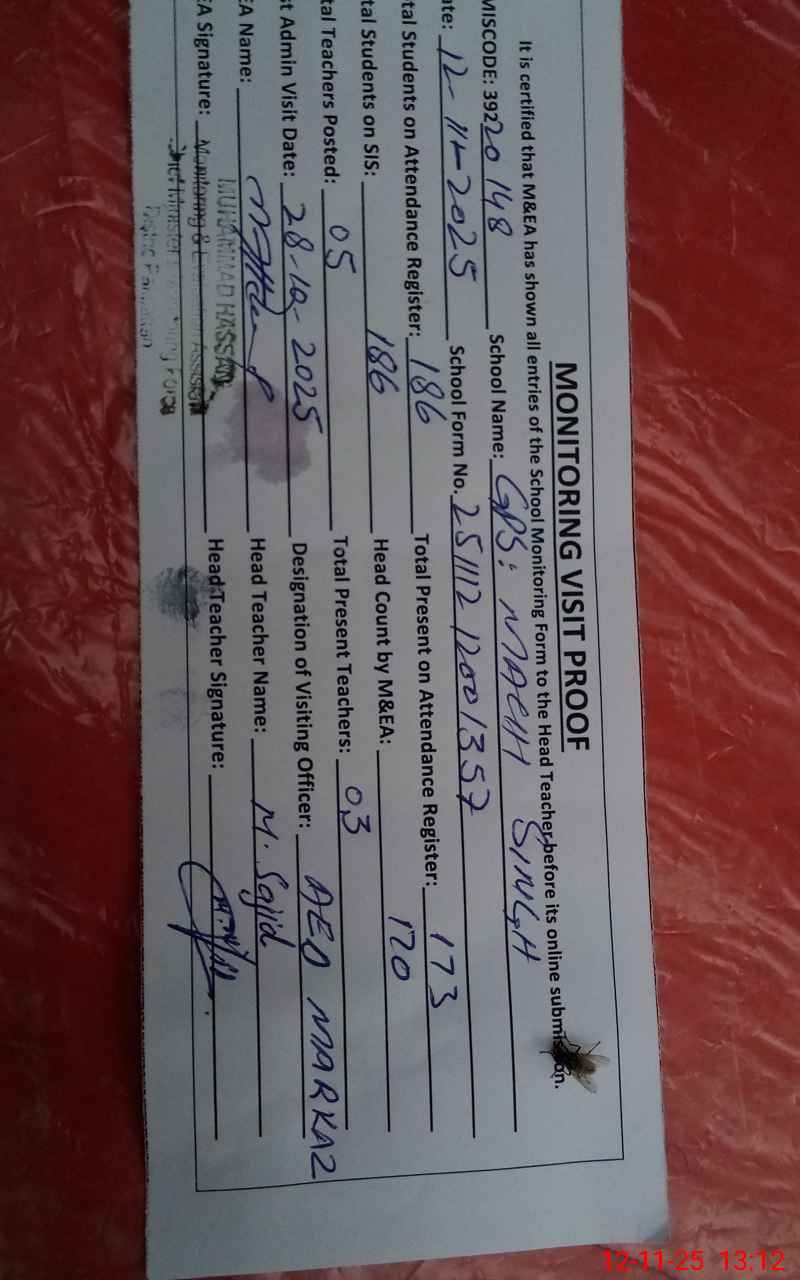 MONITORING VISIT PROOF
It is certified that M&EA has shown all entries of the School Monitoring Form to the Head Teacher before its online submission.
MISCODE: 39220148 School Name: GPS: MACHH SINGH
ate: 12-11-2025 School Form No. 251112 12001357
tal Students on Attendance Register: 186 Total Present on Attendance Register: 173
tal Students on SIS: 186 Head Count by M&EA: 170
tal Teachers Posted: 05 Total Present Teachers: 03
st Admin Visit Date: 28-10-2025 Designation of Visiting Officer: AEO MARKAZ
EA Name: Head Teacher Name: M. Sajid
MUHAMMAD HASSAN
EA Signature: Monitoring & Evaluation Assistant Head Teacher Signature:
Chief Minister Monitoring Force
12-11-25 13:12